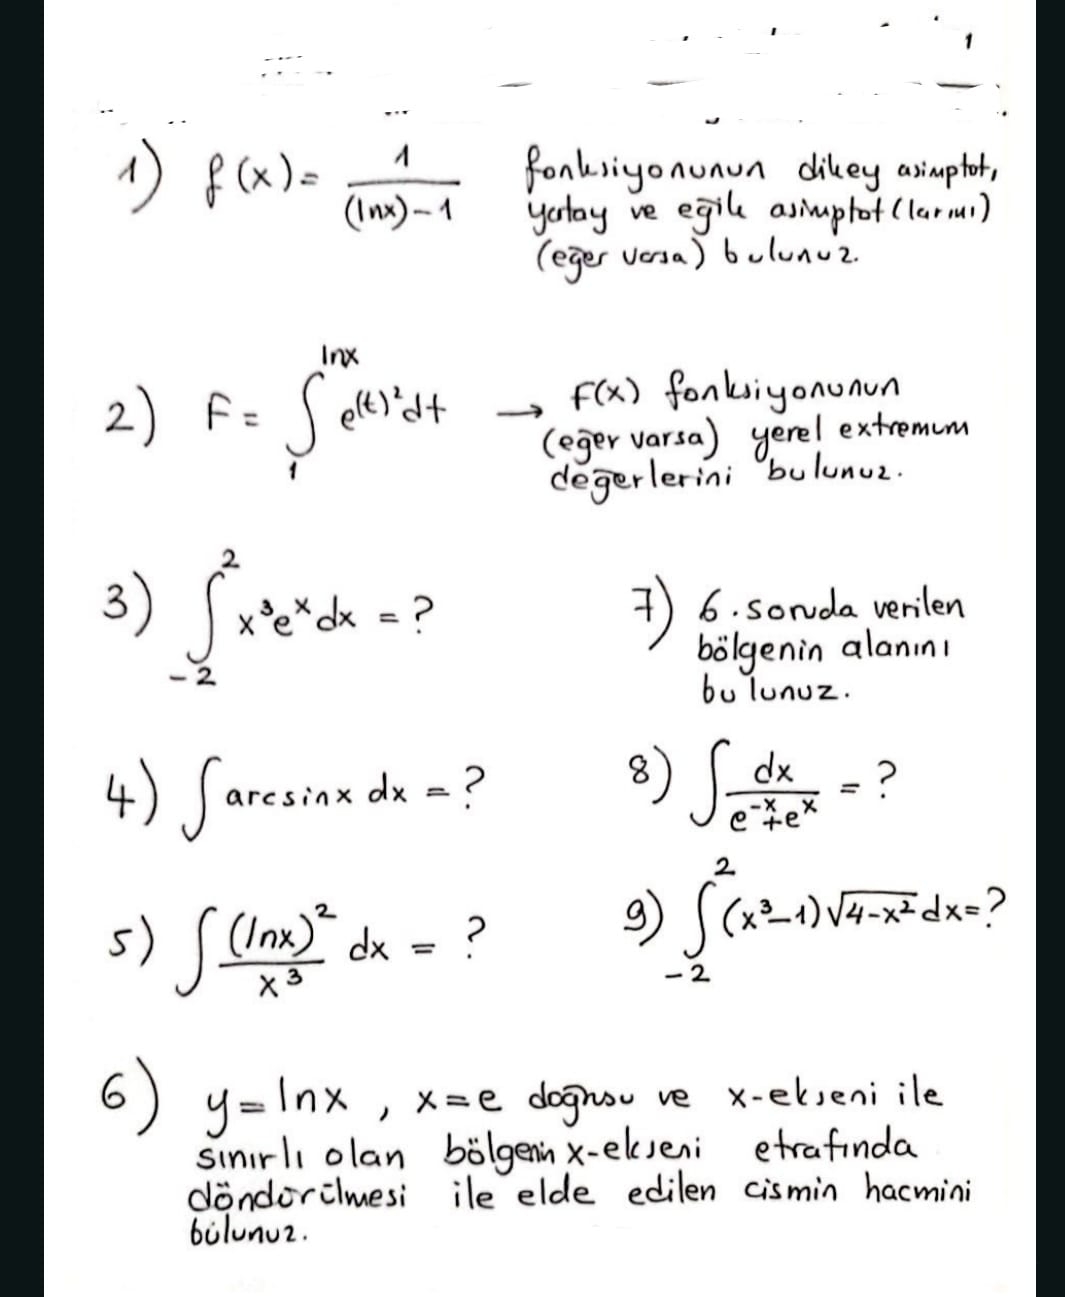 1
1) f(x) = 1/((lnx)-1) fonksiyonunun dikey asimptot,
yatay ve eğik asimptot(larını)
(eğer varsa) bulunuz.
2) F = ∫₁^(lnx) e^(t)² dt → F(x) fonksiyonunun
(eğer varsa) yerel extremum
değerlerini bulunuz.
3) ∫₋₂² x³eˣ dx = ?
4) ∫ arcsinx dx = ?
5) ∫ (lnx)²/x³ dx = ?
7) 6. soruda verilen
bölgenin alanını
bulunuz.
8) ∫ dx/(e⁻ˣ+eˣ) = ?
9) ∫₋₂² (x³-1)√(4-x²) dx = ?
6) y = lnx , x = e doğrusu ve x-ekseni ile
sınırlı olan bölgenin x-ekseni etrafında
döndürülmesi ile elde edilen cismin hacmini
bulunuz.